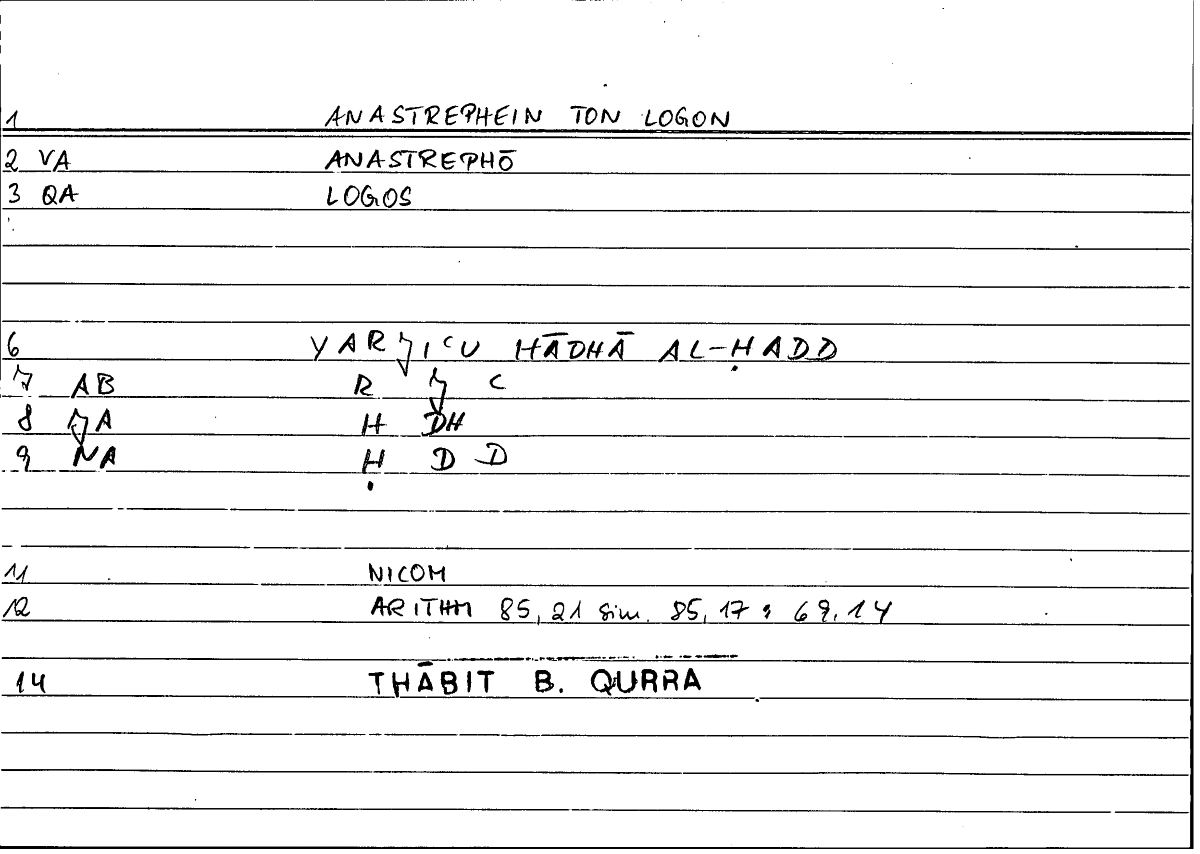 1 ANASTREPHEIN TON LOGON
2 VA ANASTREPHŌ
3 QA LOGOS
6 YARJIʿU HĀDHĀ AL-ḤADD
7 AB R J ʿ
8 JA H DH
9 NA Ḥ D D
11 NICOM
12 ARITHM 85,21 sim. 85,17 ; 69.14
14 THĀBIT B. QURRA